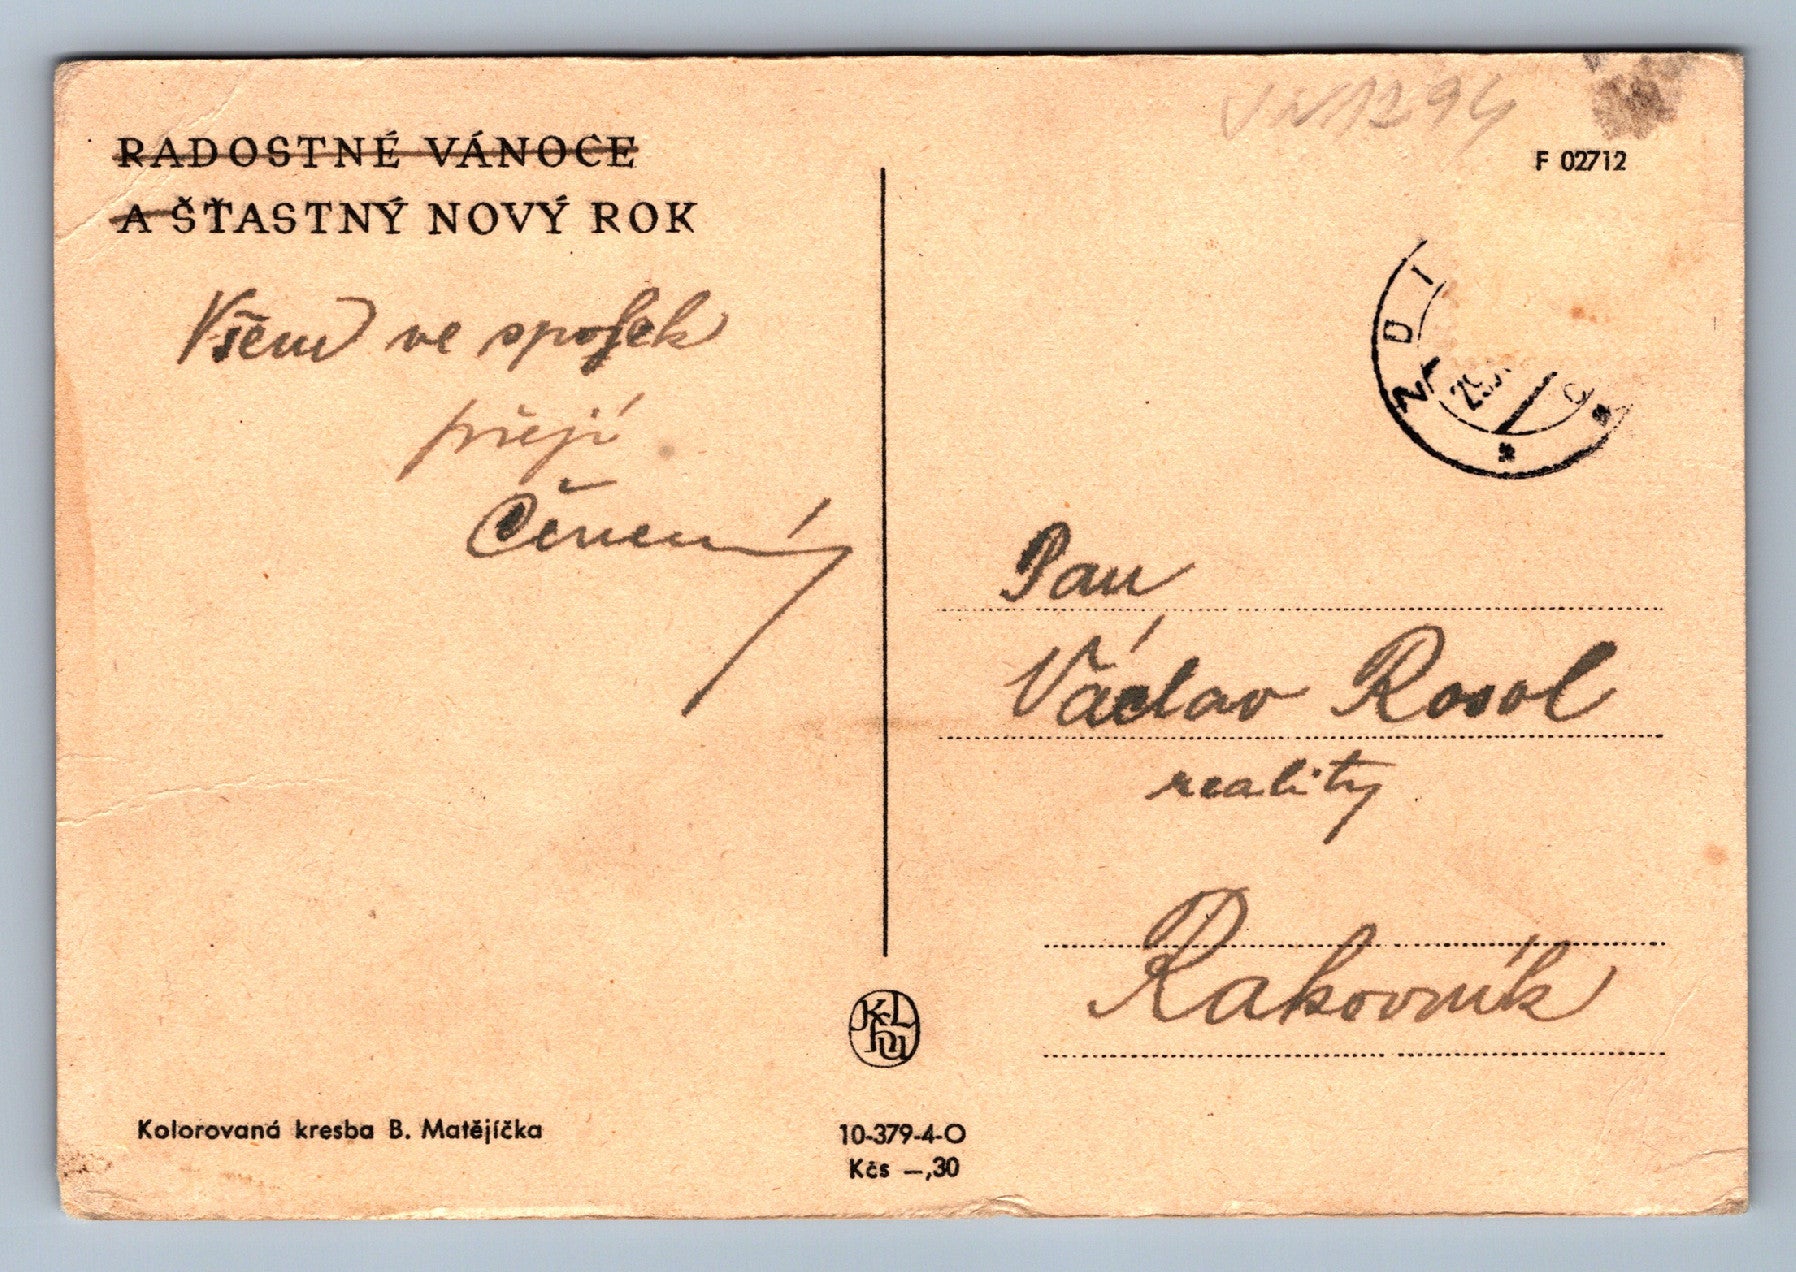 RADOSTNÉ VÁNOCE
A ŠŤASTNÝ NOVÝ ROK
Všem ve spolek
přejí
F 02712
ZDI
29.
Pan
Václav Rosol
reality
Rakovník
Kolorovaná kresba B. Matějíčka
10-379-4-O
Kčs —,30